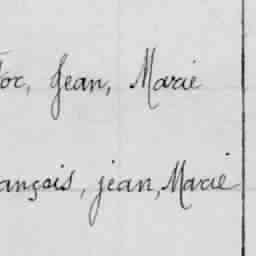 Jean, Marie
ançois, jean, Marie